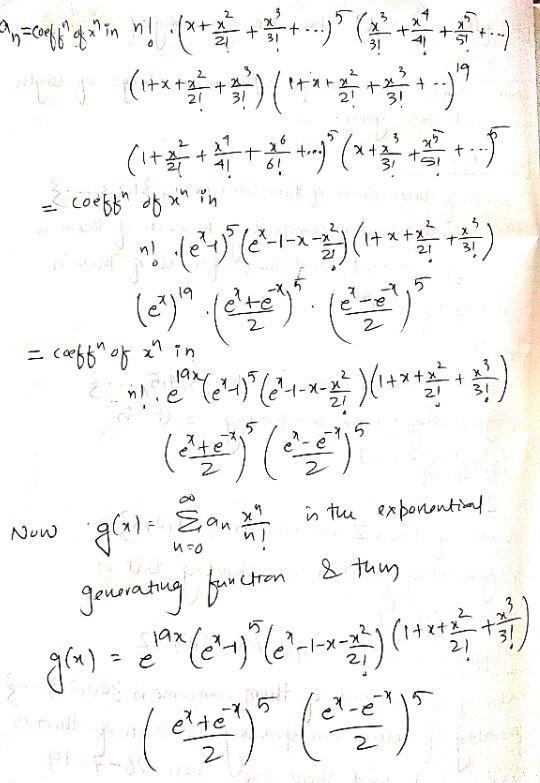 aₙ = coeffⁿ of xⁿ in n! · (x + x²/2! + x³/3! + ···)⁵ (x³/3! + x⁴/4! + x⁵/5! + ··)
(1 + x + x²/2! + x³/3!) (1 + x + x²/2! + x³/3! + ··)¹⁹
(1 + x²/2! + x⁴/4! + x⁶/6! + ...)⁵ (x + x³/3! + x⁵/5! + ···)⁵
= coeffⁿ of xⁿ in
n! · (eˣ-1)⁵ (eˣ-1-x-x²/2!) (1 + x + x²/2! + x³/3!)
(eˣ)¹⁹ · ((eˣ+e⁻ˣ)/2)⁵ · ((eˣ-e⁻ˣ)/2)⁵
= coeffⁿ of xⁿ in
n! · e¹⁹ˣ (eˣ-1)⁵ (eˣ-1-x-x²/2!) (1 + x + x²/2! + x³/3!)
((eˣ+e⁻ˣ)/2)⁵ ((eˣ-e⁻ˣ)/2)⁵
Now g(x) = ∞Σn=0 aₙ xⁿ/n! is the exponential
generating function & thus
g(x) = e¹⁹ˣ (eˣ-1)⁵ (eˣ-1-x-x²/2!) (1+x+x²/2! + x³/3!)
((eˣ+e⁻ˣ)/2)⁵ ((eˣ-e⁻ˣ)/2)⁵